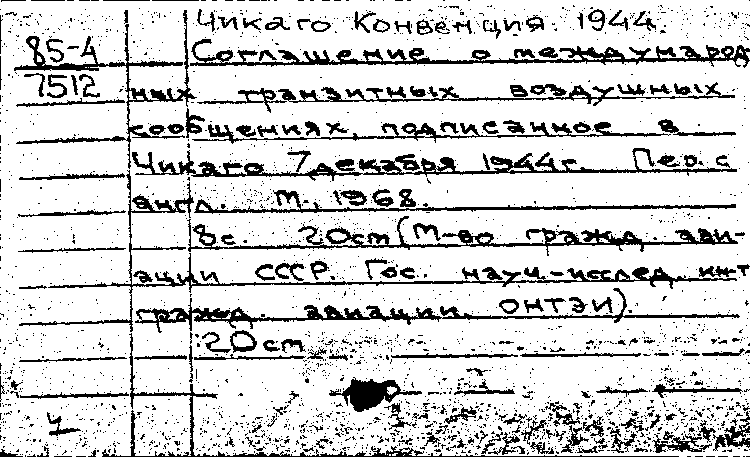 Чикаго Конвенция. 1944.
85-4
7512
Соглашение о международ
ных транзитных воздушных
сообщениях, подписанное в
Чикаго 7 декабря 1944 г. Пер. с
англ. М., 1968.
8 с. 20 см (М-во гражд. ави-
ации СССР. Гос. науч.-исслед. ин-т
гражд. авиации, ОНТЭИ).
20 см